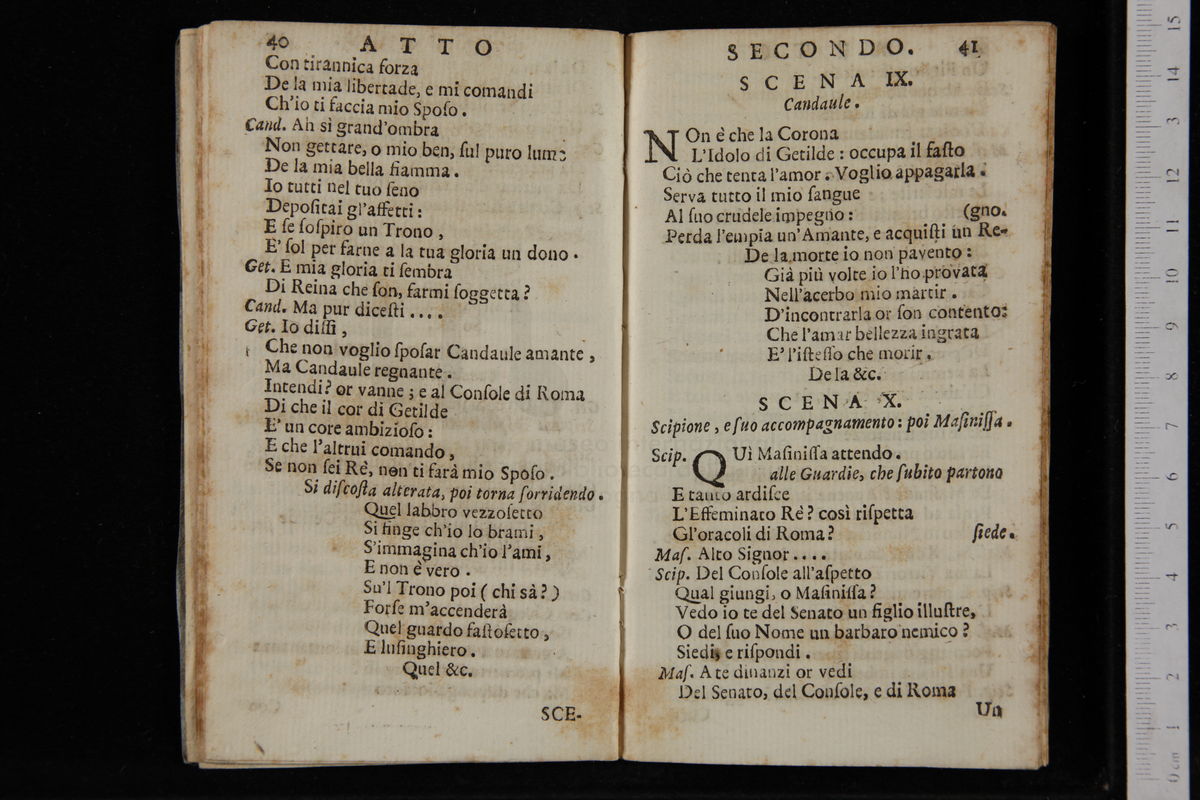 40 ATTO
Con tirannica forza
De la mia libertade, e mi comandi
Ch'io ti faccia mio Spoſo.
Cand. Ah sì grand'ombra
Non gettare, o mio ben, ſul puro lume
De la mia bella fiamma.
Io tutti nel tuo ſeno
Depoſitai gl'affetti:
E ſe ſoſpiro un Trono,
E' ſol per farne a la tua gloria un dono.
Get. E mia gloria ti ſembra
Di Reina che ſon, farmi ſoggetta?
Cand. Ma pur diceſti....
Get. Io diſſi,
Che non voglio ſpoſar Candaule amante,
Ma Candaule regnante.
Intendi? or vanne; e al Conſole di Roma
Di che il cor di Getilde
E' un core ambizioſo:
E che l'altrui comando,
Se non ſei Rè, non ti farà mio Spoſo.
Si diſcoſta alterata, poi torna ſorridendo.
Quel labbro vezzoſetto
Si finge ch'io lo brami,
S'immagina ch'io l'ami,
E non è vero.
Su'l Trono poi (chi sà?)
Forſe m'accenderà
Quel guardo faſtoſetto,
E luſinghiero.
Quel &c.
SCE-
SECONDO. 41
SCENA IX.
Candaule.
NOn è che la Corona
L'Idolo di Getilde: occupa il faſto
Ciò che tenta l'amor. Voglio appagarla.
Serva tutto il mio ſangue
Al ſuo crudele impegno: (gno.
Perda l'empia un'Amante, e acquiſti un Re-
De la morte io non pavento:
Già più volte io l'ho provata
Nell'acerbo mio martir.
D'incontrarla or ſon contento:
Che l'amar bellezza ingrata
E' l'iſteſſo che morir.
De la &c.
SCENA X.
Scipione, e ſuo accompagnamento: poi Maſiniſſa.
Scip. QUì Maſiniſſa attendo.
alle Guardie, che ſubito partono
E tanto ardiſce
L'Effeminato Rè? così riſpetta
Gl'oracoli di Roma? ſiede.
Maſ. Alto Signor....
Scip. Del Conſole all'aſpetto
Qual giungi, o Maſiniſſa?
Vedo io te del Senato un figlio illuſtre,
O del ſuo Nome un barbaro nemico?
Siedi, e riſpondi.
Maſ. A te dinanzi or vedi
Del Senato, del Conſole, e di Roma
Un